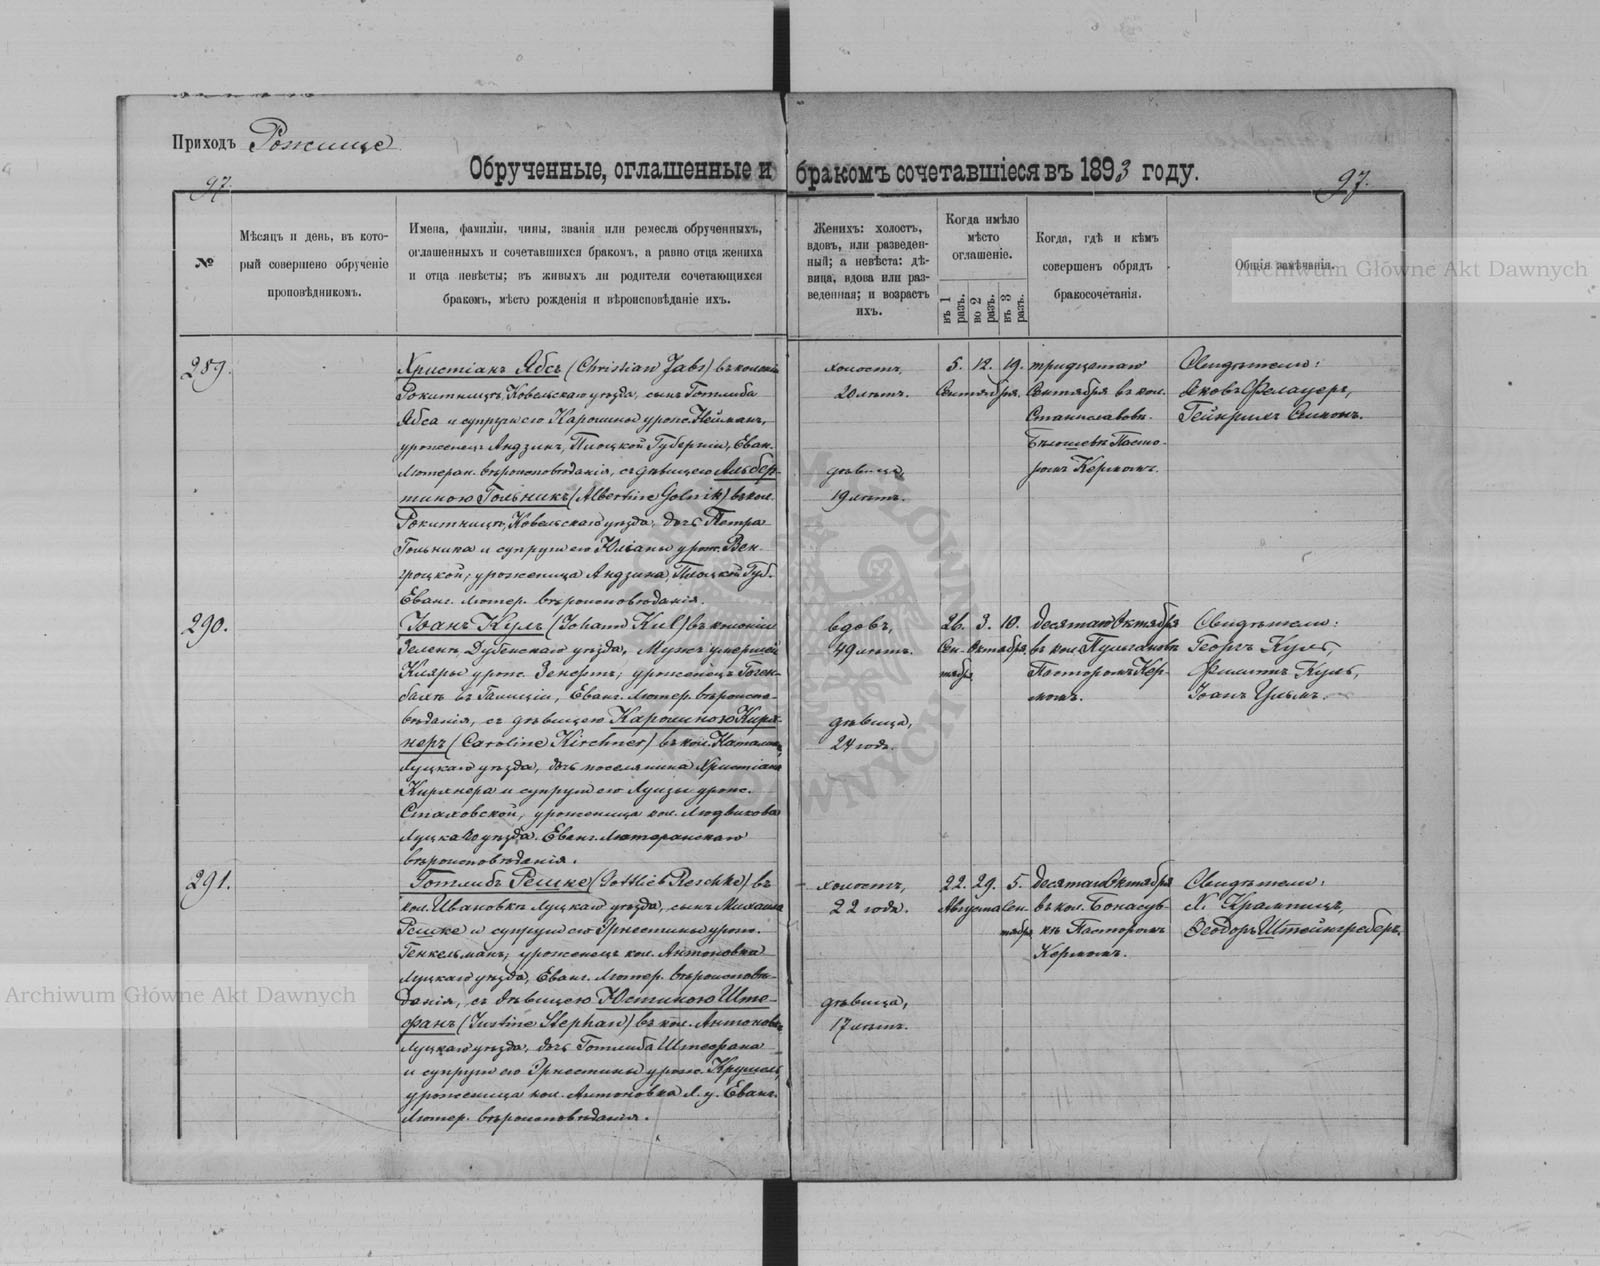 Приходъ Рожище
Обрученные, оглашенные и бракомъ сочетавшіеся въ 1893 году.
97.
97.
№
Мѣсяцъ и день, въ кото-
рый совершено обрученіе
проповѣдникомъ.
Имена, фамиліи, чины, званія или ремесла обрученныхъ,
оглашенныхъ и сочетавшихся бракомъ, а равно отца жениха
и отца невѣсты; въ живыхъ ли родители сочетающихся
бракомъ, мѣсто рожденія и вѣроисповѣданіе ихъ.
Женихъ: холостъ,
вдовъ, или разведен-
ный; а невѣста: дѣ-
вица, вдова или раз-
веденная; и возрастъ
ихъ.
Когда имѣло
мѣсто
оглашеніе.
въ 1 разъ.
во 2 разъ.
въ 3 разъ.
Когда, гдѣ и кѣмъ
совершенъ обрядъ
бракосочетанія.
Общія замѣчанія.
289.
Христіанъ Ябсъ (Christian Jabs) въ колоніи
Рокитницѣ, Ковельскаго уѣзда, сынъ Готлиба
Ябса и супруги его Каролины урож. Нейманъ,
уроженецъ Андзинъ, Плоцкой Губерніи, Еван.
Лютеран. вѣроисповѣданія, съ дѣвицею Альбер-
тиною Гольникъ (Albertine Golnik) въ кол.
Рокитницѣ, Ковельскаго уѣзда, дочь Петра
Гольника и супруги его Юліаны урож. Вен-
гроцкой, уроженица Андзина, Плоцкой Губ.
Еванг. Лютер. вѣроисповѣданія.
холостъ,
20 лѣтъ.
дѣвица,
19 лѣтъ.
5. 12. 19.
Сентября.
тридцатаго
Сентября въ кол.
Станиславов.
Пасто-
ромъ Кермомъ.
Свидѣтели:
Яковъ Фелауеръ,
Гейнрихъ Симон.
290.
Іоанъ Куль (Johann Kul) въ колоніи
Зелен, Дубенскаго уѣзда, Мужъ умершей
Клары урож. Зенфтъ, уроженецъ Гоген-
бахъ въ Галиціи, Еванг. Лютер. вѣроиспо-
вѣданія, съ дѣвицею Каролиною Кирх-
неръ (Caroline Kirchner) въ кол.
Луцкаго уѣзда, дочь поселянина Христіана
Кирхнера и супруги его Луизы урож.
Стаховской, уроженица кол. Людвикова
Луцкаго уѣзда. Еванг. Лютеранскаго
вѣроисповѣданія.
вдовъ,
49 лѣтъ.
дѣвица,
24 годъ.
26. 3. 10.
Сен- Октября.
тября
Десятаго Октября
въ кол.
Пасторомъ Кер-
момъ.
Свидѣтели:
Георгъ Куль,
Филиппъ Куль,
Іоанъ Ульмъ.
291.
Готлибъ Решке (Gottlieb Reschke) въ
кол. Ивановкѣ Луцкаго уѣзда, сынъ Михаила
Решке и супруги его Эрнестины урож.
Генкельманъ, уроженецъ кол. Антоновка
Луцкаго уѣзда, Еванг. Лютер. вѣроисповѣ-
данія, съ дѣвицею Юстиною Ште-
фанъ (Justine Stephan) въ кол. Антоновкѣ
Луцкаго уѣзда, дочь Готлиба Штефана
и супруги его Эрнестины урож. Крушель,
уроженица кол. Антоновка Л. у. Еванг.
Лютер. вѣроисповѣданія.
холостъ,
22 года.
дѣвица,
17 лѣтъ.
22. 29. 5.
Августа Сен-
тября
Десятаго Октября
въ кол. Бонасув-
кѣ Пасторомъ
Кермомъ.
Свидѣтели:
Х. Крампицъ,
Ѳеодоръ Штейнгреберъ.
Archiwum Główne Akt Dawnych
Archiwum Główne Akt Dawnych